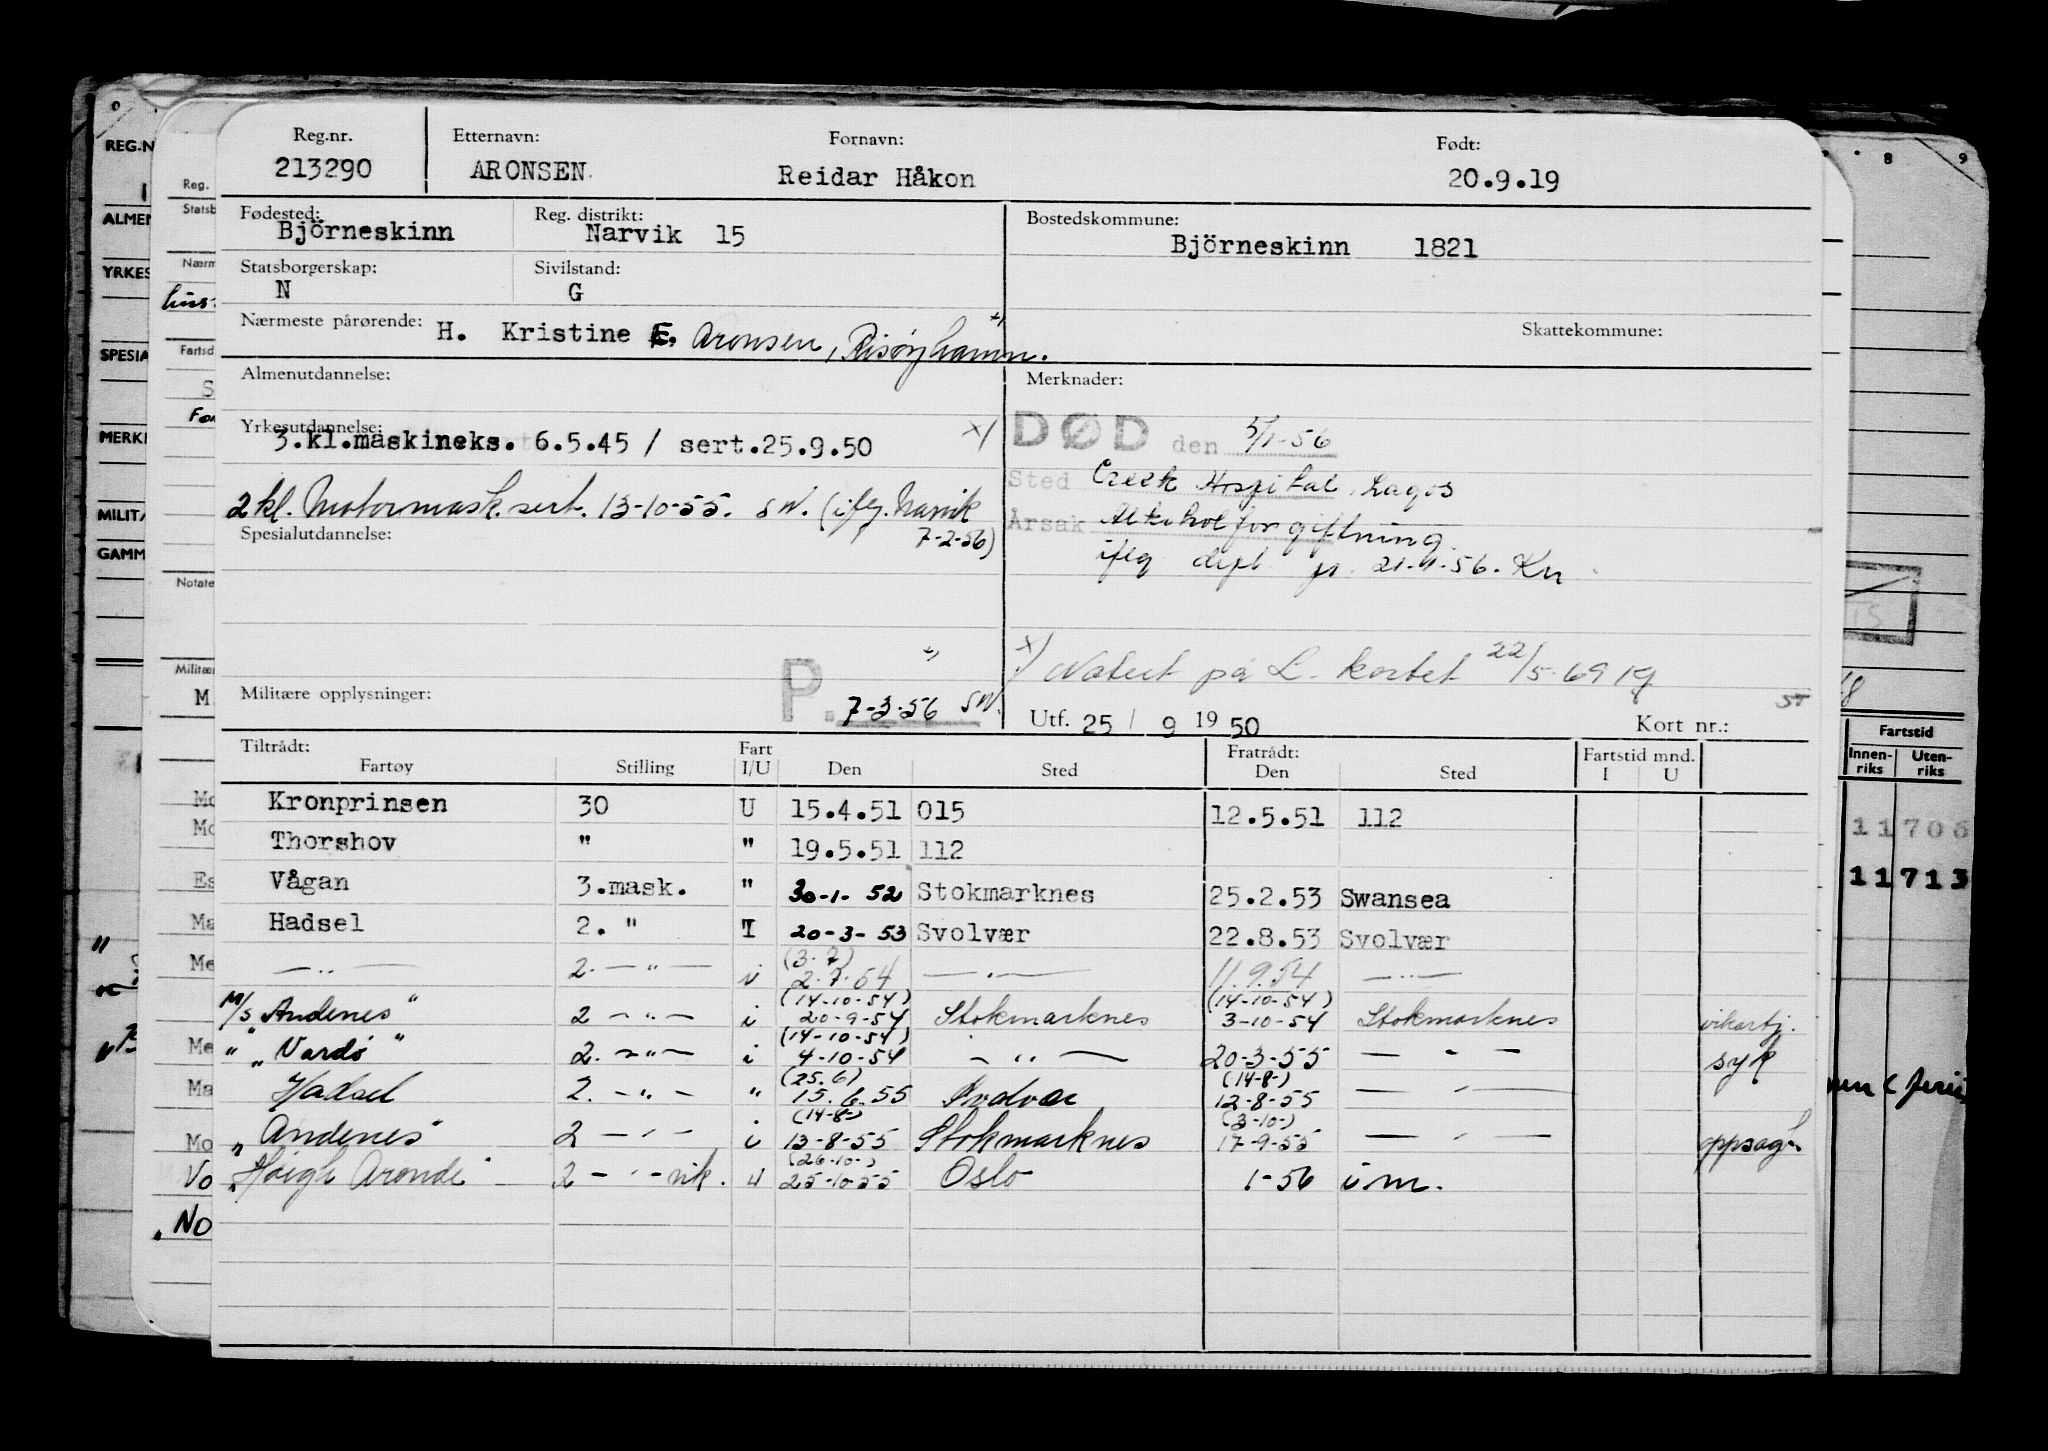 Reg.nr. Etternavn: Fornavn: Født:
213290 ARONSEN. Reidar Håkon 20.9.19
Fødested: Reg. distrikt: Bostedskommune:
Björneskinn Narvik 15 Björneskinn 1821
Statsborgerskap: Sivilstand:
N G
Nærmeste pårørende: H. Kristine E. Aronsen, Risøyhamn. Skattekommune:
Almenutdannelse: Merknader:
Yrkesutdannelse: x/ DØD den 5/1-56
3.kl.maskineks. 6.5.45 / sert.25.9.50
Sted Creek Hospital, Lagos
2 kl. Motormask.sert. 13-10-55. SW. (iflg. Narvik
7-2-56)
Årsak Alkoholforgiftning
iflg dept 21-1-56. Kn
Spesialutdannelse:
x/ Notert på L. kortet 22/5-69
Militære opplysninger: P. 7-3-56 SW.
Utf. 25 / 9 1950 Kort nr.:
Tiltrådt: Fart Fratrådt: Fartstid mnd.
Fartøy Stilling I/U Den Sted Den Sted I U
Kronprinsen 30 U 15.4.51 015 12.5.51 112
Thorshov " " 19.5.51 112
Vågan 3.mask. " 30-1-52 Stokmarknes 25.2.53 Swansea
Hadsel 2. " I 20-3-53 Svolvær 22.8.53 Svolvær
(3.7)
— " — 2. — " — i 2.7.54 — " — 11.9.54 — " —
(14-10-54) (14-10-54)
M/S Andenes" 2 — " — i 20-9-54 Stokmarknes 3-10-54 Stokmarknes vikarbj.
(14-10-54)
" " Vardø " 2. — " — i 4-10-54 — " — 20-3-55 — " — syk
(25.6) (14-8-)
Hadsel 2. — " — " 15.6.55 Svolvær 12-8-55 — " —
(14-8-) (3-10-)
" Andenes" 2 — " — i 13-8-55 Stokmarknes 17-9-55 — " — oppsagt
(26-10-)
" Høegh Aronde" 2 — " — vik. u 25-10-55 Oslo 1-56 i m.
REG.N
ALMEN
YRKES
SPESIA
MERK
MILITÆ
GAMM
Reg.
Statsb
Nærm
Fartsd
Notate
Militær
M.
Fartstid
Innen-riks Uten-riks
11706
11713